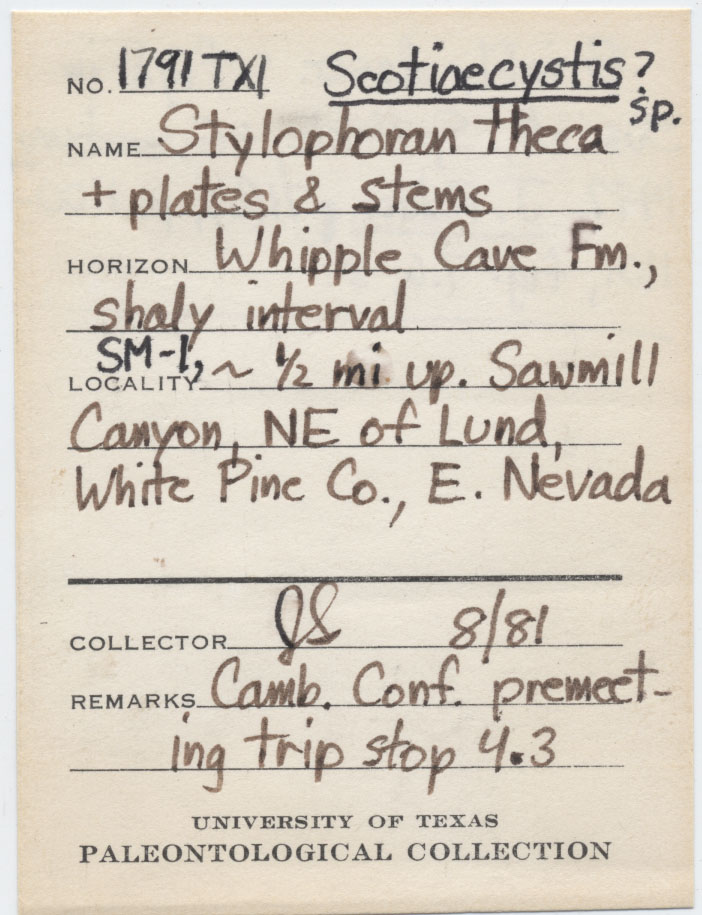 NO. 1791TX1 Scotiaecystis? sp.
NAME Stylophoran theca
+ plates & stems
HORIZON Whipple Cave Fm.,
shaly interval
LOCALITY SM-1, ~ 1/2 mi up. Sawmill
Canyon, NE of Lund,
White Pine Co., E. Nevada
COLLECTOR JS 8/81
REMARKS Camb. Conf. premeet-
ing trip stop 4.3
UNIVERSITY OF TEXAS
PALEONTOLOGICAL COLLECTION